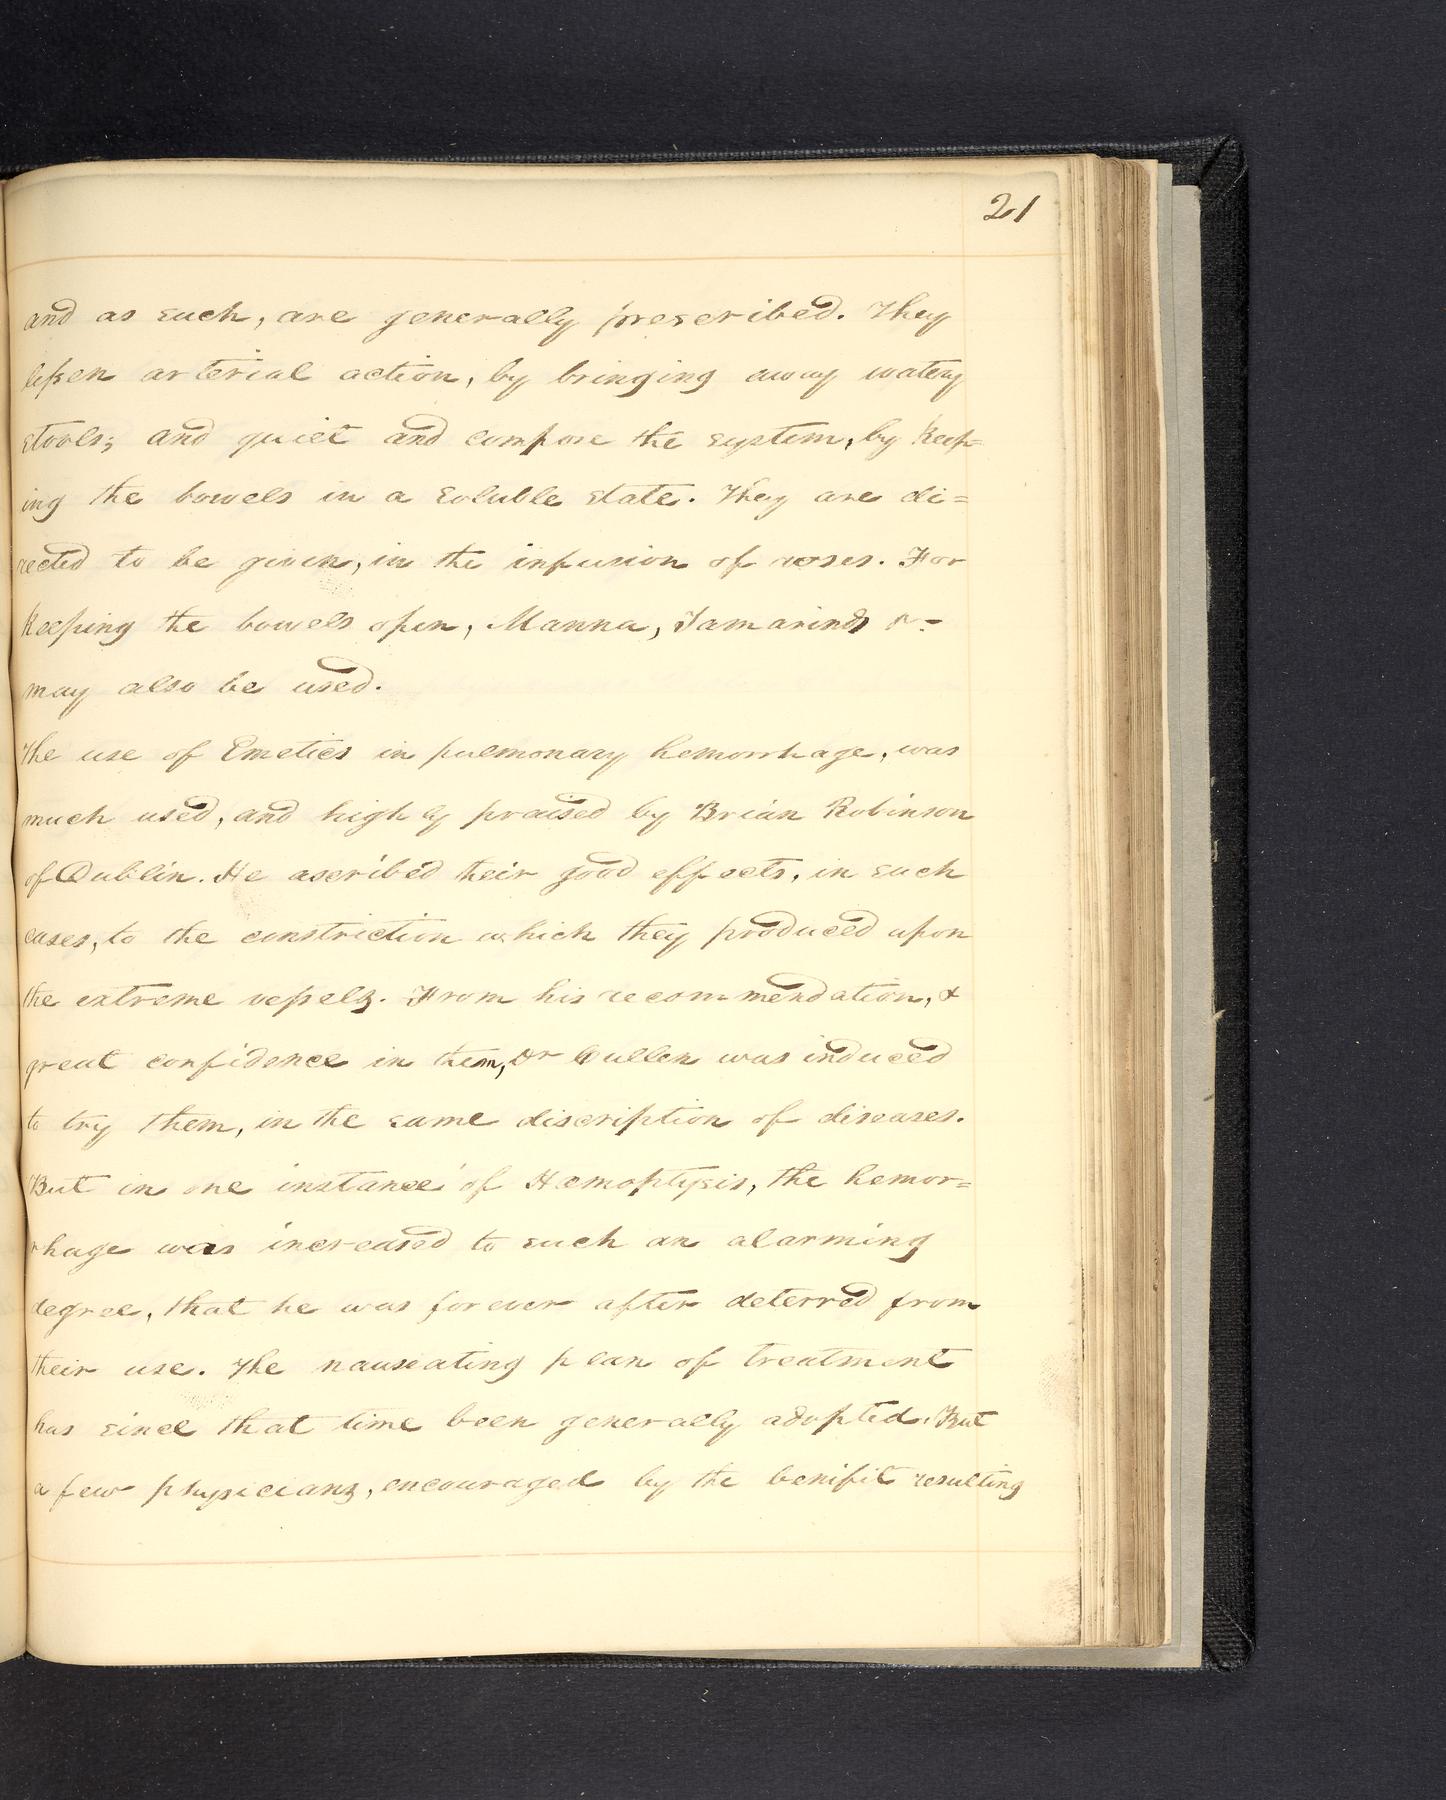 21
and as such, are generally prescribed. They
lessen arterial action, by bringing away watery
stools; and quiet and compose the system, by keep=
ing the bowels in a soluble state. They are di=
rected to be given, in the infusion of roses. For
keeping the bowels open, Manna, Tamarinds &-
may also be used.
The use of Emetics in pulmonary hemorrhage, was
much used, and highly praised by Brian Robinson
of Dublin. He ascribed their good effects, in such
cases, to the constriction which they produced upon
the extreme vessels. From his recommendation, &
great confidence in them, Dr Cullen was induced
to try them, in the same discription of diseases.
But in one instance of Hæmoptysis, the hemor=
rhage was increased to such an alarming
degree, that he was forever after deterred from
their use. The nauseating plan of treatment
has since that time been generally adopted. But
a few physicians, encouraged by the benifit resulting